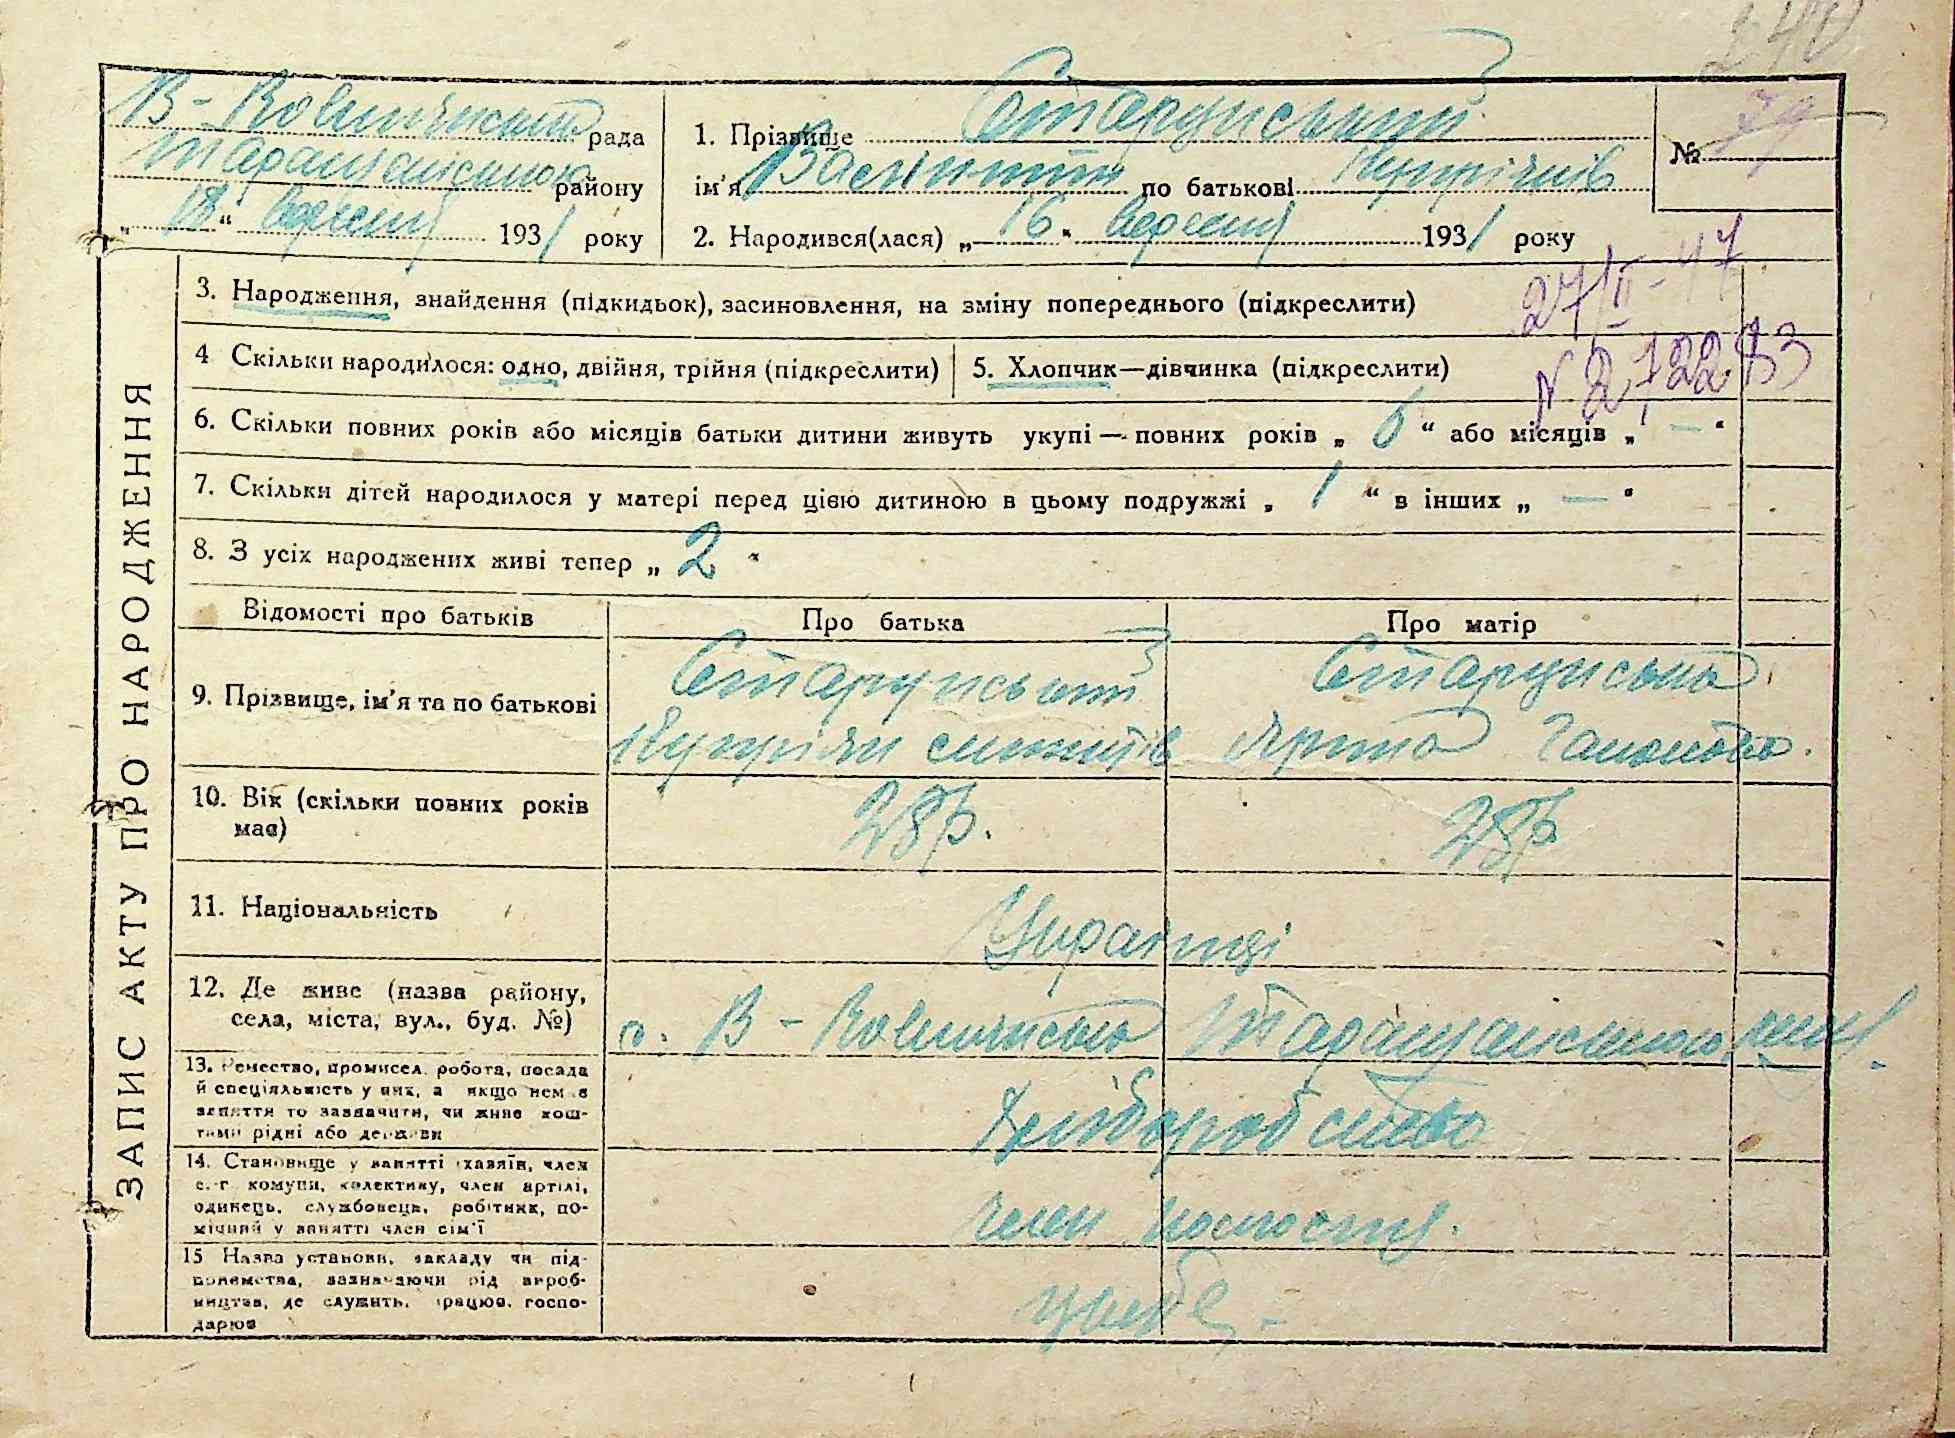 240
В-Вовнянська рада
Таращанського району
„18“ вересня 1931 року
1. Прізвище Старунський
ім'я Василь по батькові Купріянів
2. Народився(лася) „16“ вересня 1931 року
№ 79
27/II-47
ЗАПИС АКТУ ПРО НАРОДЖЕННЯ
3. Народження, знайдення (підкидьок), засиновлення, на зміну попереднього (підкреслити)
4 Скільки народилося: одно, двійня, трійня (підкреслити)
5. Хлопчик—дівчинка (підкреслити)
6. Скільки повних років або місяців батьки дитини живуть укупі — повних років „ 6 “ або місяців „ — “
7. Скільки дітей народилося у матері перед цією дитиною в цьому подружжі „ 1 “ в інших „ — “
8. З усіх народжених живі тепер „ 2 “
Відомості про батьків
Про батька
Про матір
9. Прізвище, ім'я та по батькові
Старунський
Купріян
Старунська
10. Вік (скільки повних років має)
28 р.
28 р
11. Національність
Українці
12. Де живе (назва району, села, міста, вул., буд. №)
с. В-Вовнянська Таращанського
13. Ремество, промисел, робота, посада
й спеціяльність у них, а якщо нема
заняття то зазначити, чи живе кош-
тами рідні або держави
Хліборобство
14. Становище у занятті хазяїн, член
с.-г комуни, колективу, член артілі,
одинець, службовець, робітник, по-
мічний у занятті член сім'ї
член
15 Назва установи, закладу чи під-
приємства, зазначаючи рід вироб-
ництва, де служить, працює, госпо-
дарює